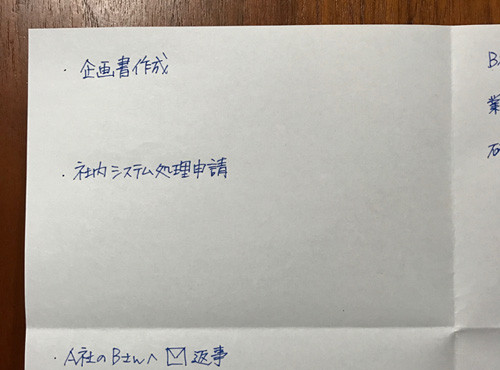 ・企画書作成
・社内システム処理申請
・A社のBさんへ ✉ 返事
B
業